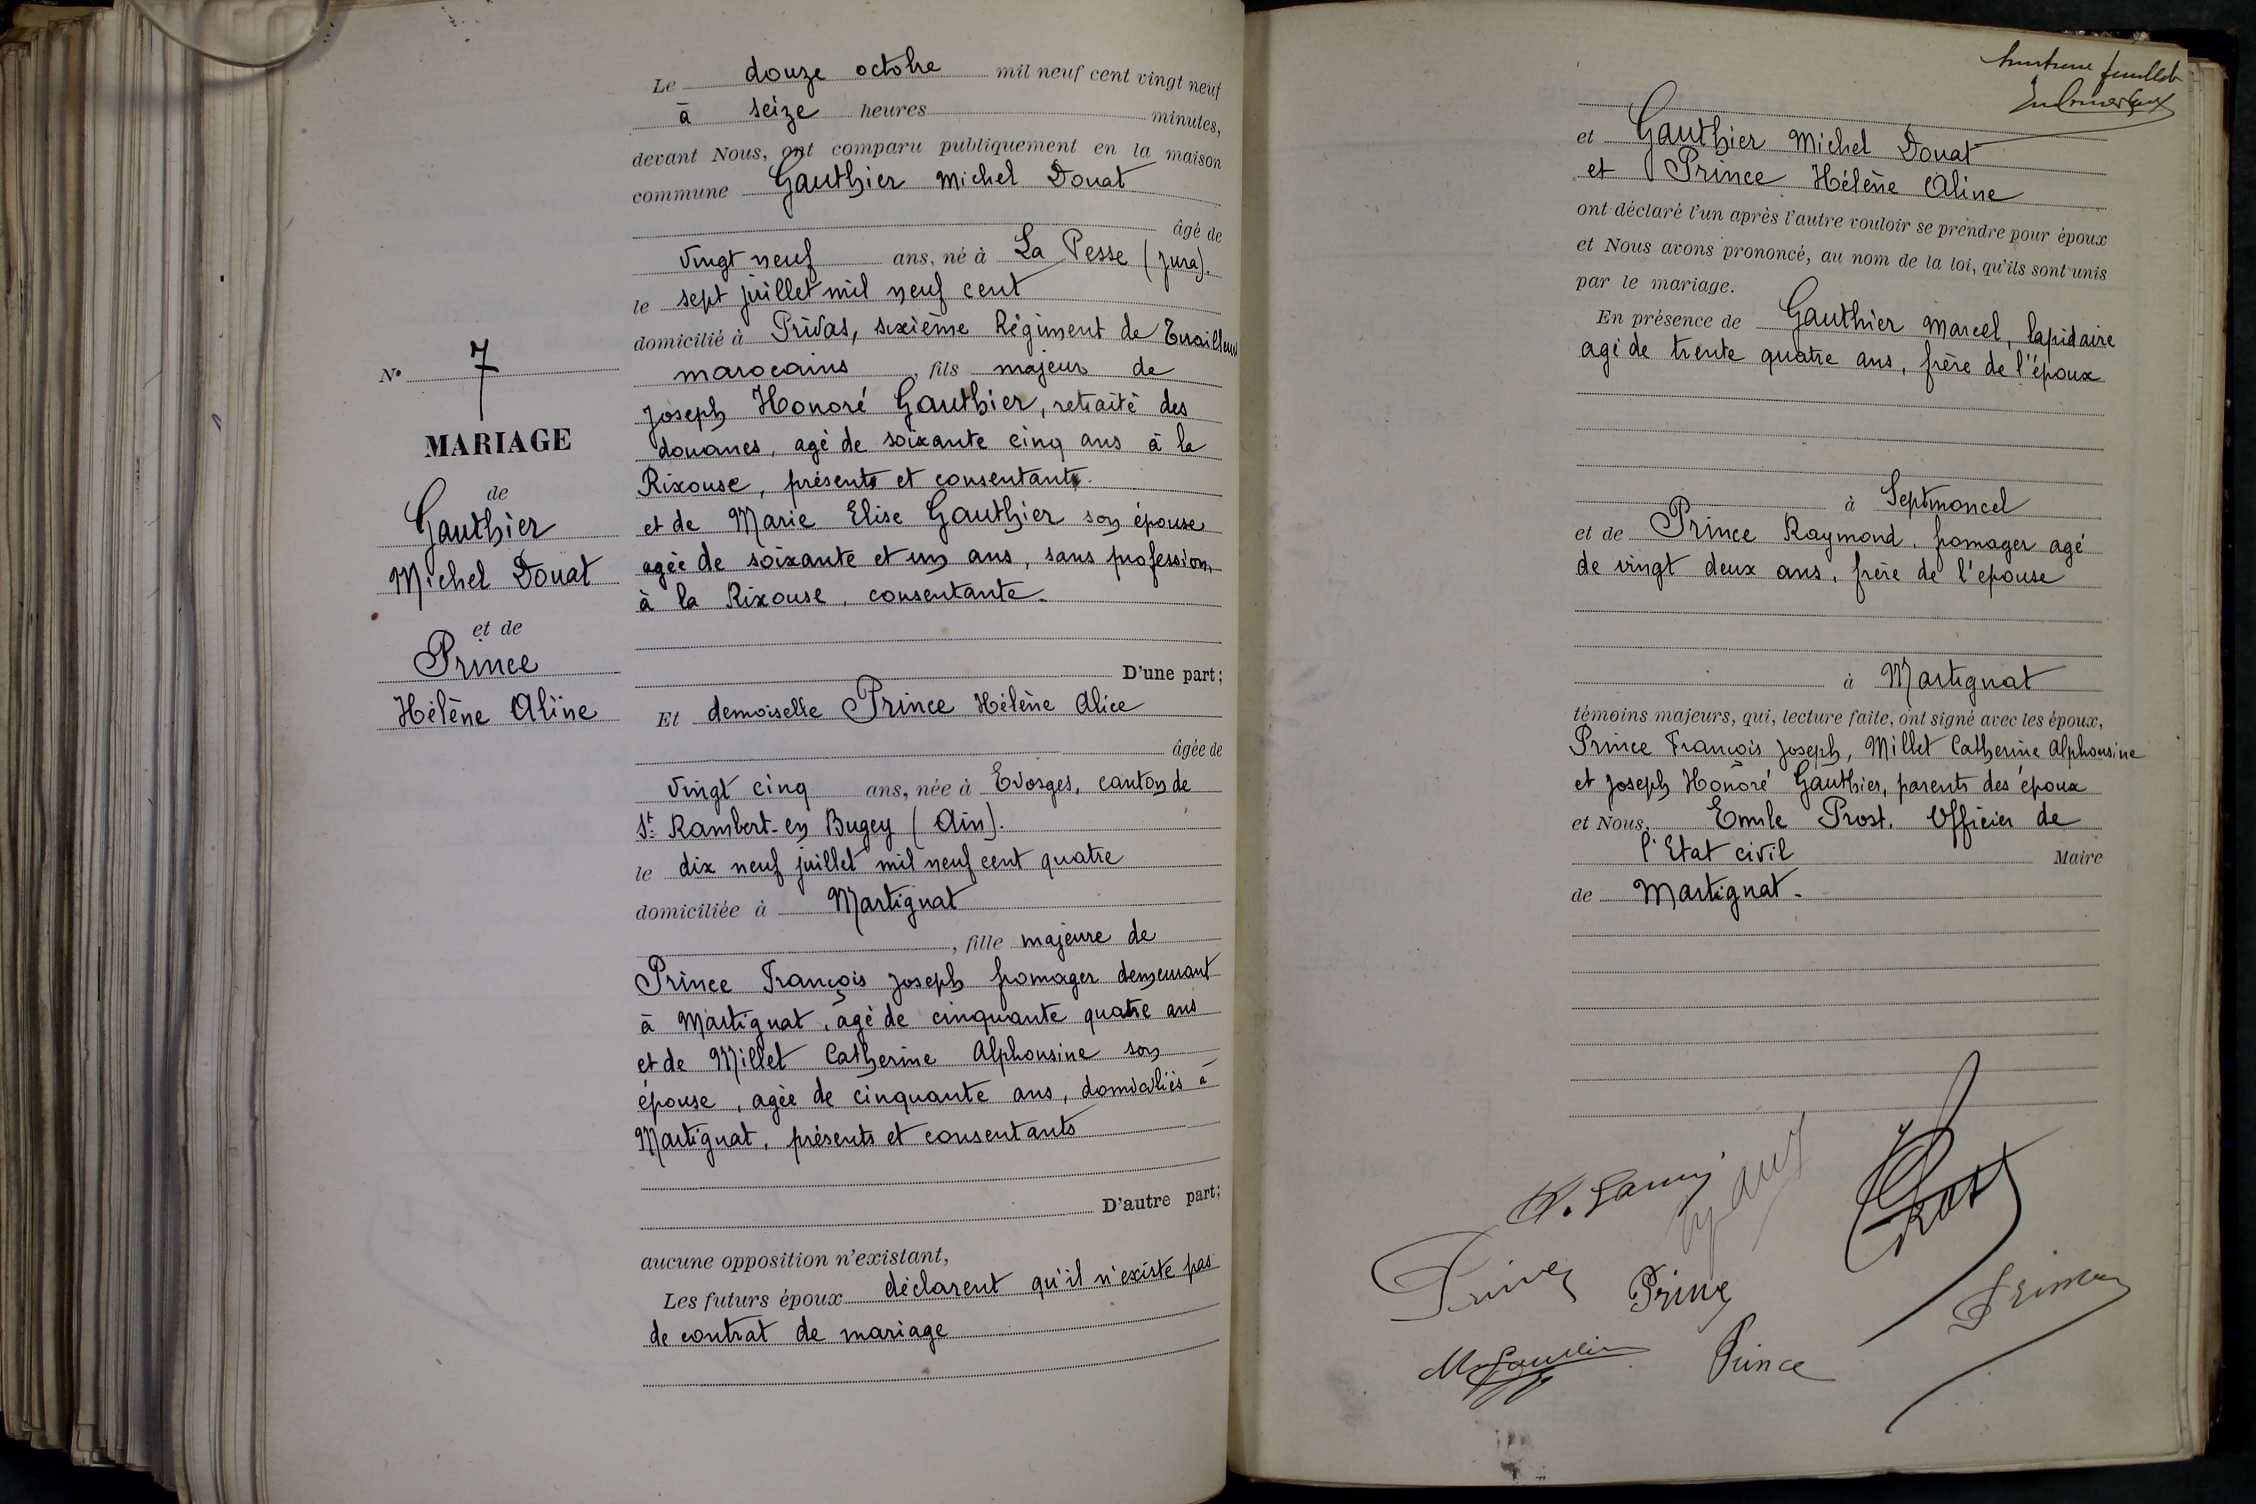 Le douze octobre mil neuf cent vingt neuf
à seize heures minutes,
devant Nous, ont comparu publiquement en la maison
commune Gauthier Michel Donat
âgé de
vingt neuf ans, né à La Pesse (Jura).
le sept juillet mil neuf cent
domicilié à Privas, sixième Régiment de Tirailleurs
marocains, fils majeur de
Joseph Honoré Gauthier, retraité des
douanes, agé de soixante cinq ans à la
Rixouse, présent et consentant.
et de Marie Elise Gauthier son épouse
agée de soixante et un ans, sans profession,
à la Rixouse, consentante.
D'une part;
N° 7
MARIAGE
de
Gauthier
Michel Donat
et de
Prince
Hélène Aline
Et demoiselle Prince Hélène Alice
âgée de
vingt cinq ans, née à Evosges, canton de
St Rambert-en Bugey (Ain).
le dix neuf juillet mil neuf cent quatre
domiciliée à Martignat
, fille majeure de
Prince François Joseph fromager demeurant
à Martignat, agé de cinquante quatre ans
et de Millet Catherine Alphonsine son
épouse, agée de cinquante ans, domiciliés à
Martignat, présents et consentants
D'autre part;
aucune opposition n'existant,
Les futurs époux déclarent qu'il n'existe pas
de contrat de mariage
feuillet
et Gauthier Michel Donat
et Prince Hélène Aline
ont déclaré l'un après l'autre vouloir se prendre pour époux
et Nous avons prononcé, au nom de la loi, qu'ils sont unis
par le mariage.
En présence de Gauthier Marcel, lapidaire
agé de trente quatre ans, frère de l'époux
à Septmoncel
et de Prince Raymond, fromager agé
de vingt deux ans, frère de l'epouse
à Martignat
témoins majeurs, qui, lecture faite, ont signé avec les époux,
Prince François Joseph, Millet Catherine Alphonsine
et Joseph Honoré Gauthier, parents des époux
et Nous, Emile Prost, Officier de
l'Etat civil Maire
de Martignat.
Prost
Prince
Prince
Prince